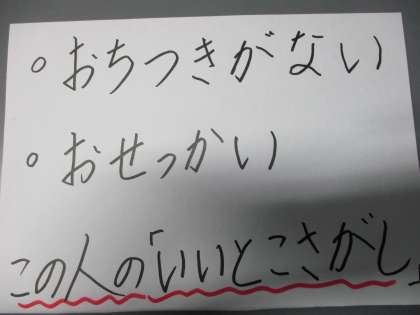 ○ おちつきがない
○ おせっかい
この人の「いいとこさがし」